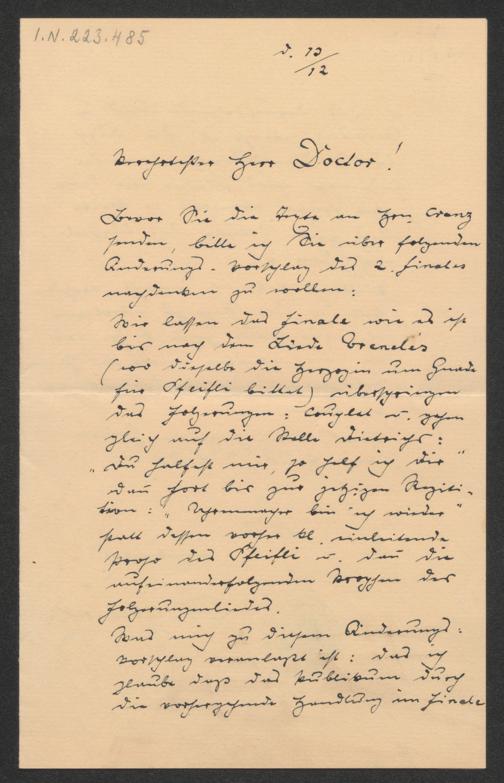 I.N. 223.485
d. 13/12
Verehrtester Herr Doctor!
Bevor Sie die Texte an Hrn. Cranz
senden, bitte ich Sie über folgenden
Änderungs-Vorschlag des 2. Finales
nachdenken zu wollen:
Wir lassen das Finale wie es ist
bis nach dem Liede Vreneles
(wo dieselbe die Herzogin um Gnade
für Pfeifli bittet) überspringen
das Folgerungen: Couplet u. gehen
gleich auf die Stelle Dietrichs:
"Du halfest mir, so helf ich Dir"
dañ fort bis zur jetzigen Rezita-
tion: "Uhrmacher bin ich wieder"
statt dessen vorher kl. einleitende
Prosa des Pfeifli u. dañ die
aufeinanderfolgenden Strophen des
Folgerungenliedes.
Was mich zu diesem Änderungs-
vorschlag veranlaßt ist: das ich
glaube daß das Publikum durch
die vorhergehende Handlung im Finale